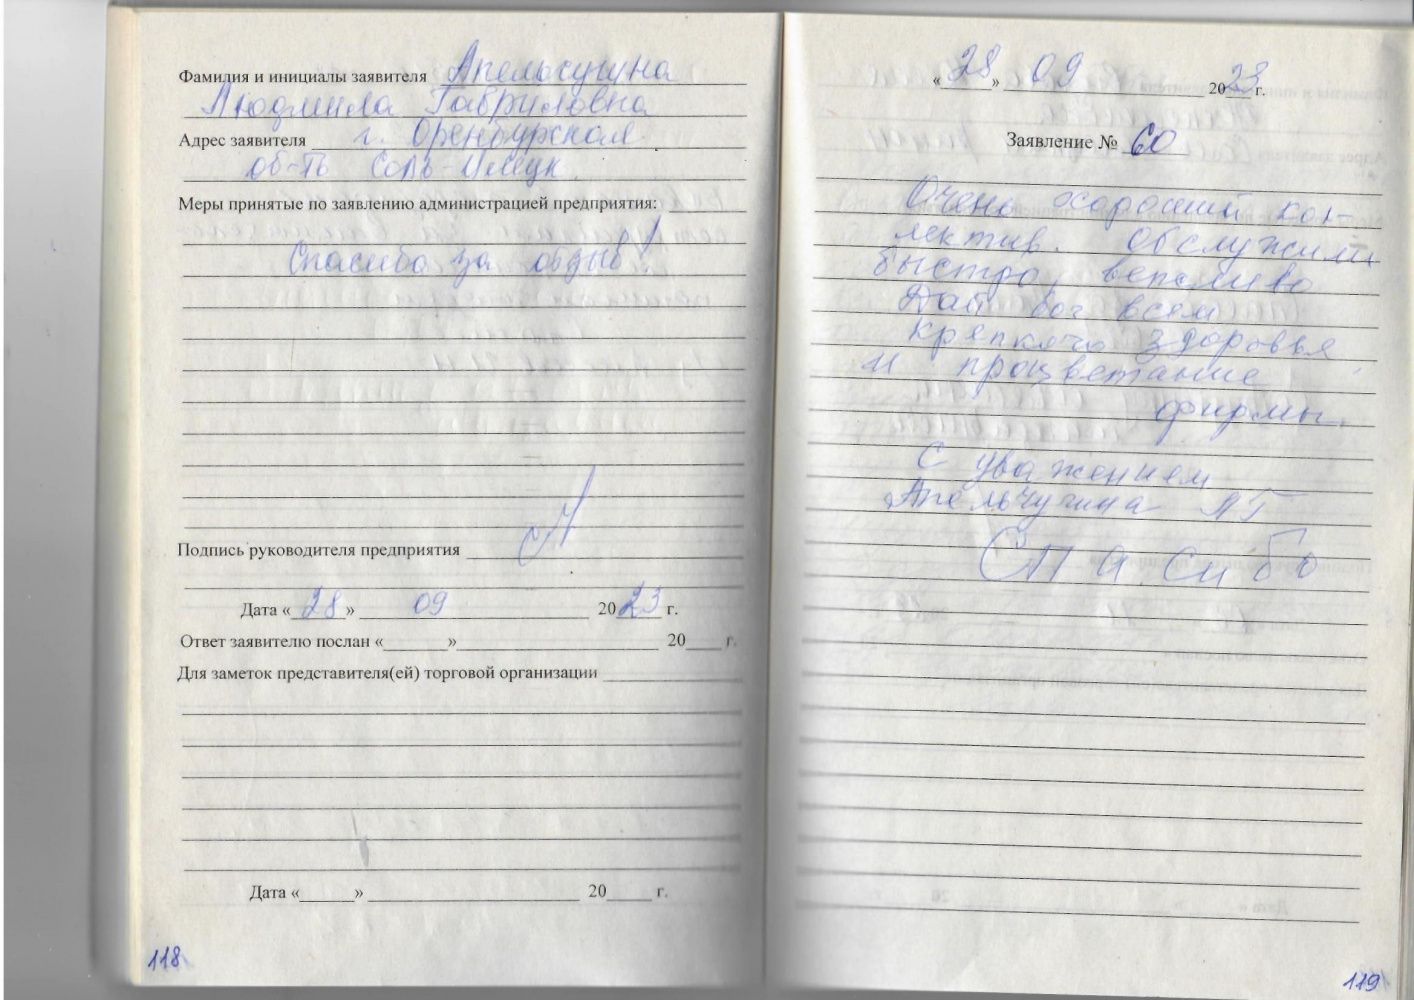 Фамилия и инициалы заявителя Апельсугуна
Людмила Габриловна
Адрес заявителя г. Оренбурская
об-ть Соль-Илецк
Меры принятые по заявлению администрацией предприятия:
Спасибо за обдыв!
Подпись руководителя предприятия
Дата «28» 09 2023 г.
Ответ заявителю послан « » 20 г.
Для заметок представителя(ей) торговой организации
Дата « » 20 г.
118
«28» 09 2023 г.
Заявление № 60
Очень хороший кол-
лектив. Обслужили
быстро, вепсливо
Дай бог всем
крепкого здоровья
и процветание
фирмы
С уважением
Апельчугина ЛГ
Спасибо
119